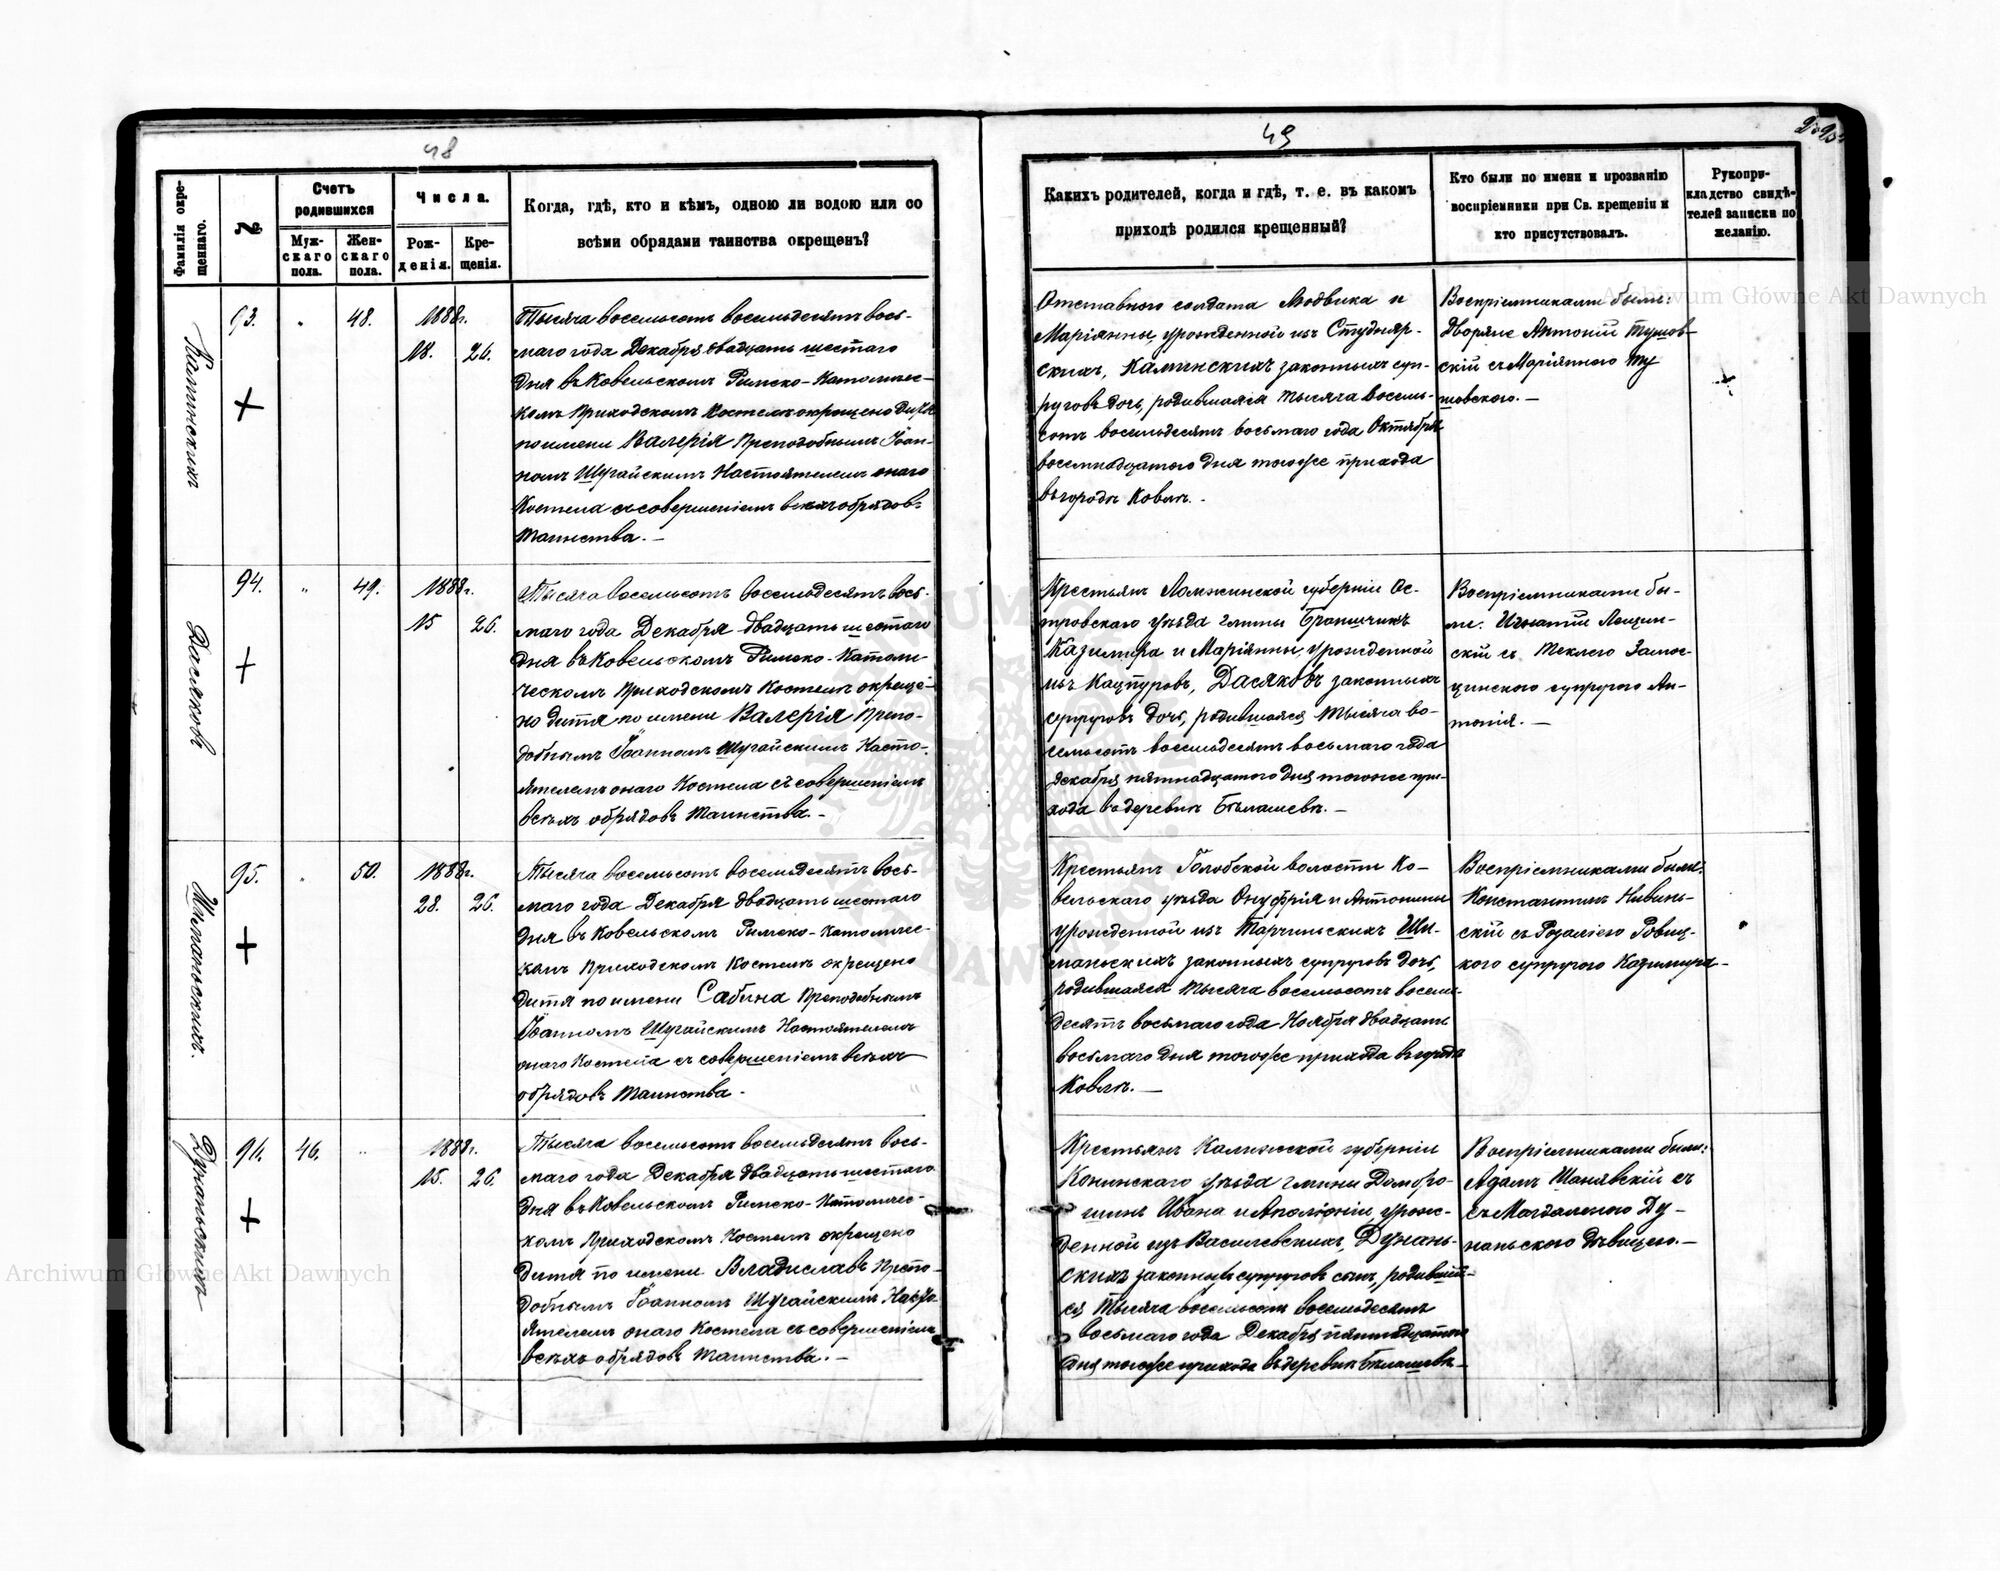 48
Фамилія окре-
щеннаго.
№
Счетъ
родившихся
Муж-
скаго
пола.
Жен-
скаго
пола.
Числа.
Рож-
денія.
Кре-
щенія.
Когда, гдѣ, кто и кѣмъ, одною ли водою или со
всѣми обрядами таинства окрещенъ?
Каминскихъ
93.
48.
1888г.
18.
26.
Тысяча восемьсотъ восемьдесятъ вось-
маго года Декабря двадцать шестаго
дня въ Ковельскомъ Римско-Католичес-
комъ Приходскомъ Костелѣ окрещено дитя
по имени Валерія Преподобнымъ Іоан-
номъ Шугайскимъ Настоятелемъ онаго
Костела съ совершеніемъ всѣхъ обрядовъ
Таинства. —
Дасяковъ
94.
49.
1888г.
15
26.
Тысяча восемьсотъ восемьдесятъ вось-
маго года Декабря двадцать шестаго
дня въ Ковельскомъ Римско-Католи
ческомъ Приходскомъ Костелѣ окреще-
но дитя по имени Валерія Препо-
добнымъ Іоанномъ Шугайскимъ Насто-
ятелемъ онаго Костела съ совершеніемъ
всѣхъ обрядовъ Таинства. —
Шиманьскихъ.
95.
50.
1888г.
28.
26.
Тысяча восемьсотъ восемьдесятъ вось-
маго года Декабря двадцать шестаго
дня въ Ковельскомъ Римско-Католичес-
комъ Приходскомъ Костелѣ окрещено
дитя по имени Сабина Преподобнымъ
Іоанномъ Шугайскимъ Настоятелемъ
онаго Костела съ совершеніемъ всѣхъ
обрядовъ Таинства.
Дунаньскихъ
96.
46.
1888г.
15.
26.
Тысяча восемьсотъ восемьдесятъ вось-
маго года Декабря двадцать шестаго
дня въ Ковельскомъ Римско-Католичес-
комъ Приходскомъ Костелѣ окрещено
дитя по имени Владиславъ Препо-
добнымъ Іоанномъ Шугайскимъ Насто-
ятелемъ онаго Костела съ совершеніемъ
всѣхъ обрядовъ Таинства. —
49
Какихъ родителей, когда и гдѣ, т. е. въ какомъ
приходѣ родился крещенный?
Кто были по имени и прозванію
воспріемники при Св. крещеніи и
кто присутствовалъ.
Рукопри-
кладство свидѣ-
телей записки по
желанію.
Отставного солдата Людвика и
Маріанны, урожденной изъ Студняр-
скихъ, Каминскихъ законныхъ суп-
руговъ дочь, родившаяся тысяча восемь-
сотъ восемьдесятъ восьмаго года Октября
восемнадцатого дня того же прихода
въ городѣ Ковлѣ. —
Воспріемниками были:
Дворяне Антоній Тушов-
скій съ Маріянною Ту
шовскою. —
Крестьянъ Ломжинской губерніи Ос-
тровскаго уѣзда гмины Бранщикъ
Казимира и Маріянны, урожденной
изъ Кацпуровъ, Дасяковъ законныхъ
супруговъ дочь, родившаяся тысяча во-
семьсотъ восемьдесятъ восьмаго года
Декабря пятнадцатого дня того же при-
хода въ деревнѣ Бѣлашевѣ. —
Воспріемниками бы-
ли: Игнатій Лещин-
скій съ Теклею Замос-
цинскою супругою Ан-
тонія. —
Крестьянъ Голобской волости Ко-
вельскаго уѣзда Онуфрія и Антонины
урожденной изъ Тарчинскихъ Ши-
маньскихъ законныхъ супруговъ дочь,
родившаяся тысяча восемьсотъ восемь-
десятъ восьмаго года Ноября двадцать
восьмаго дня того же прихода въ городѣ
Ковлѣ. —
Воспріемниками были:
Константинъ Нивинь-
скій съ Розаліею Ровиц-
кою супругою Казимира —
Крестьянъ Калишской губерніи
Конинскаго уѣзда гмины Домбро-
шинъ Ивана и Аполіоніи урож-
денной изъ Василевскихъ, Дунань-
скихъ законныхъ супруговъ сынъ, родивший-
ся тысяча восемьсотъ восемьдесятъ
восьмаго года Декабря пятнадцатого
дня того же прихода въ деревнѣ Бѣлашевѣ —
Воспріемниками были:
Адамъ Шанявскій съ
съ Магдаленою Ду-
наньскою дѣвицею. —
Archiwum Główne Akt Dawnych
Archiwum Główne Akt Dawnych